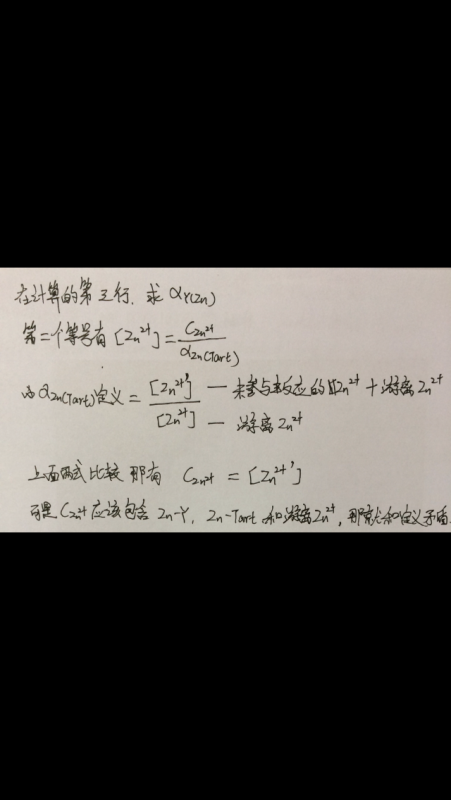 在计算的第三行.求 αY(Zn)
第二个等号有 [Zn²⁺] = CZn²⁺ / αZn(Tart)
而 αZn(Tart)定义 = [Zn²⁺'] — 未参与主反应的Zn²⁺ + 游离Zn²⁺
[Zn²⁺] — 游离Zn²⁺
上面两式比较 那有 CZn²⁺ = [Zn²⁺']
可是 CZn²⁺ 应该包含 Zn-Y, Zn-Tart 和游离Zn²⁺, 那就和定义矛盾.